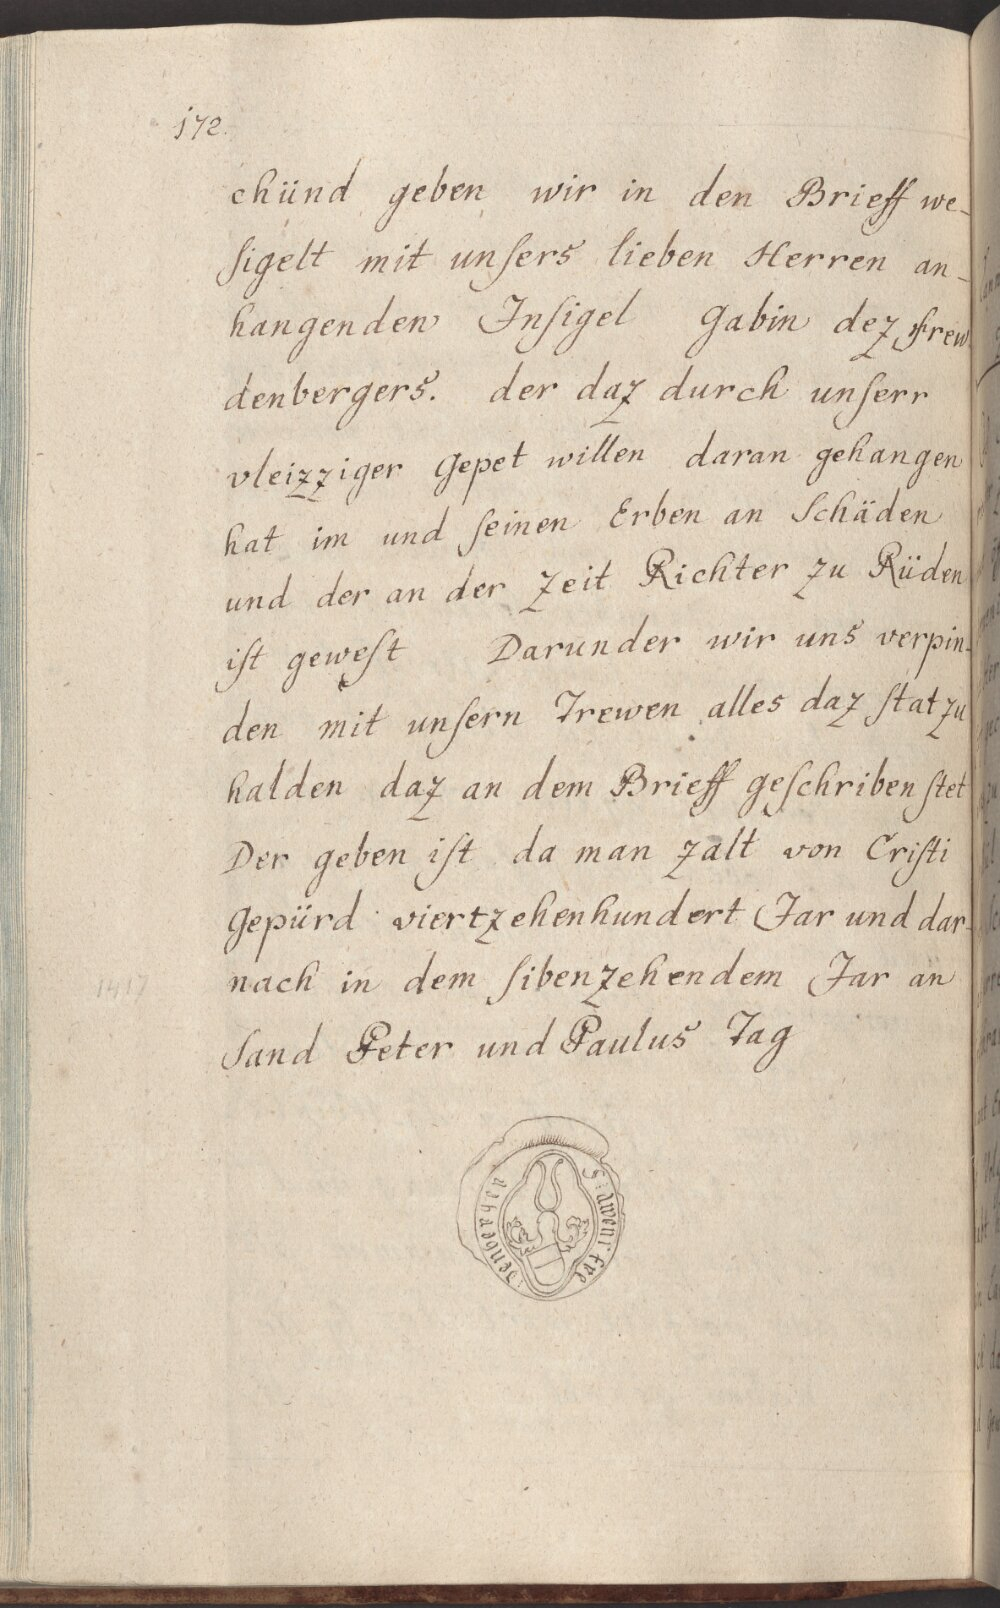 172.
chünd geben wir in den Brieff we-
sigelt mit unsers lieben Herren an-
hangenden Insigel Gabin dez Frew
denbergers. der daz durch unserr
vleizziger Gepet willen daran gehangen
hat im und seinen Erben an Schäden
und der an der Zeit Richter zu Rüden
ist gewest Darunder wir uns verpin-
den mit unsern Trewen alles daz stat zu
halden daz an dem Brieff geschriben stet
Der geben ist da man zalt von Cristi
Gepürd viertzehenhundert Jar und dar-
nach in dem sibenzehendem Jar an
Sand Peter und Paulus Tag
1417